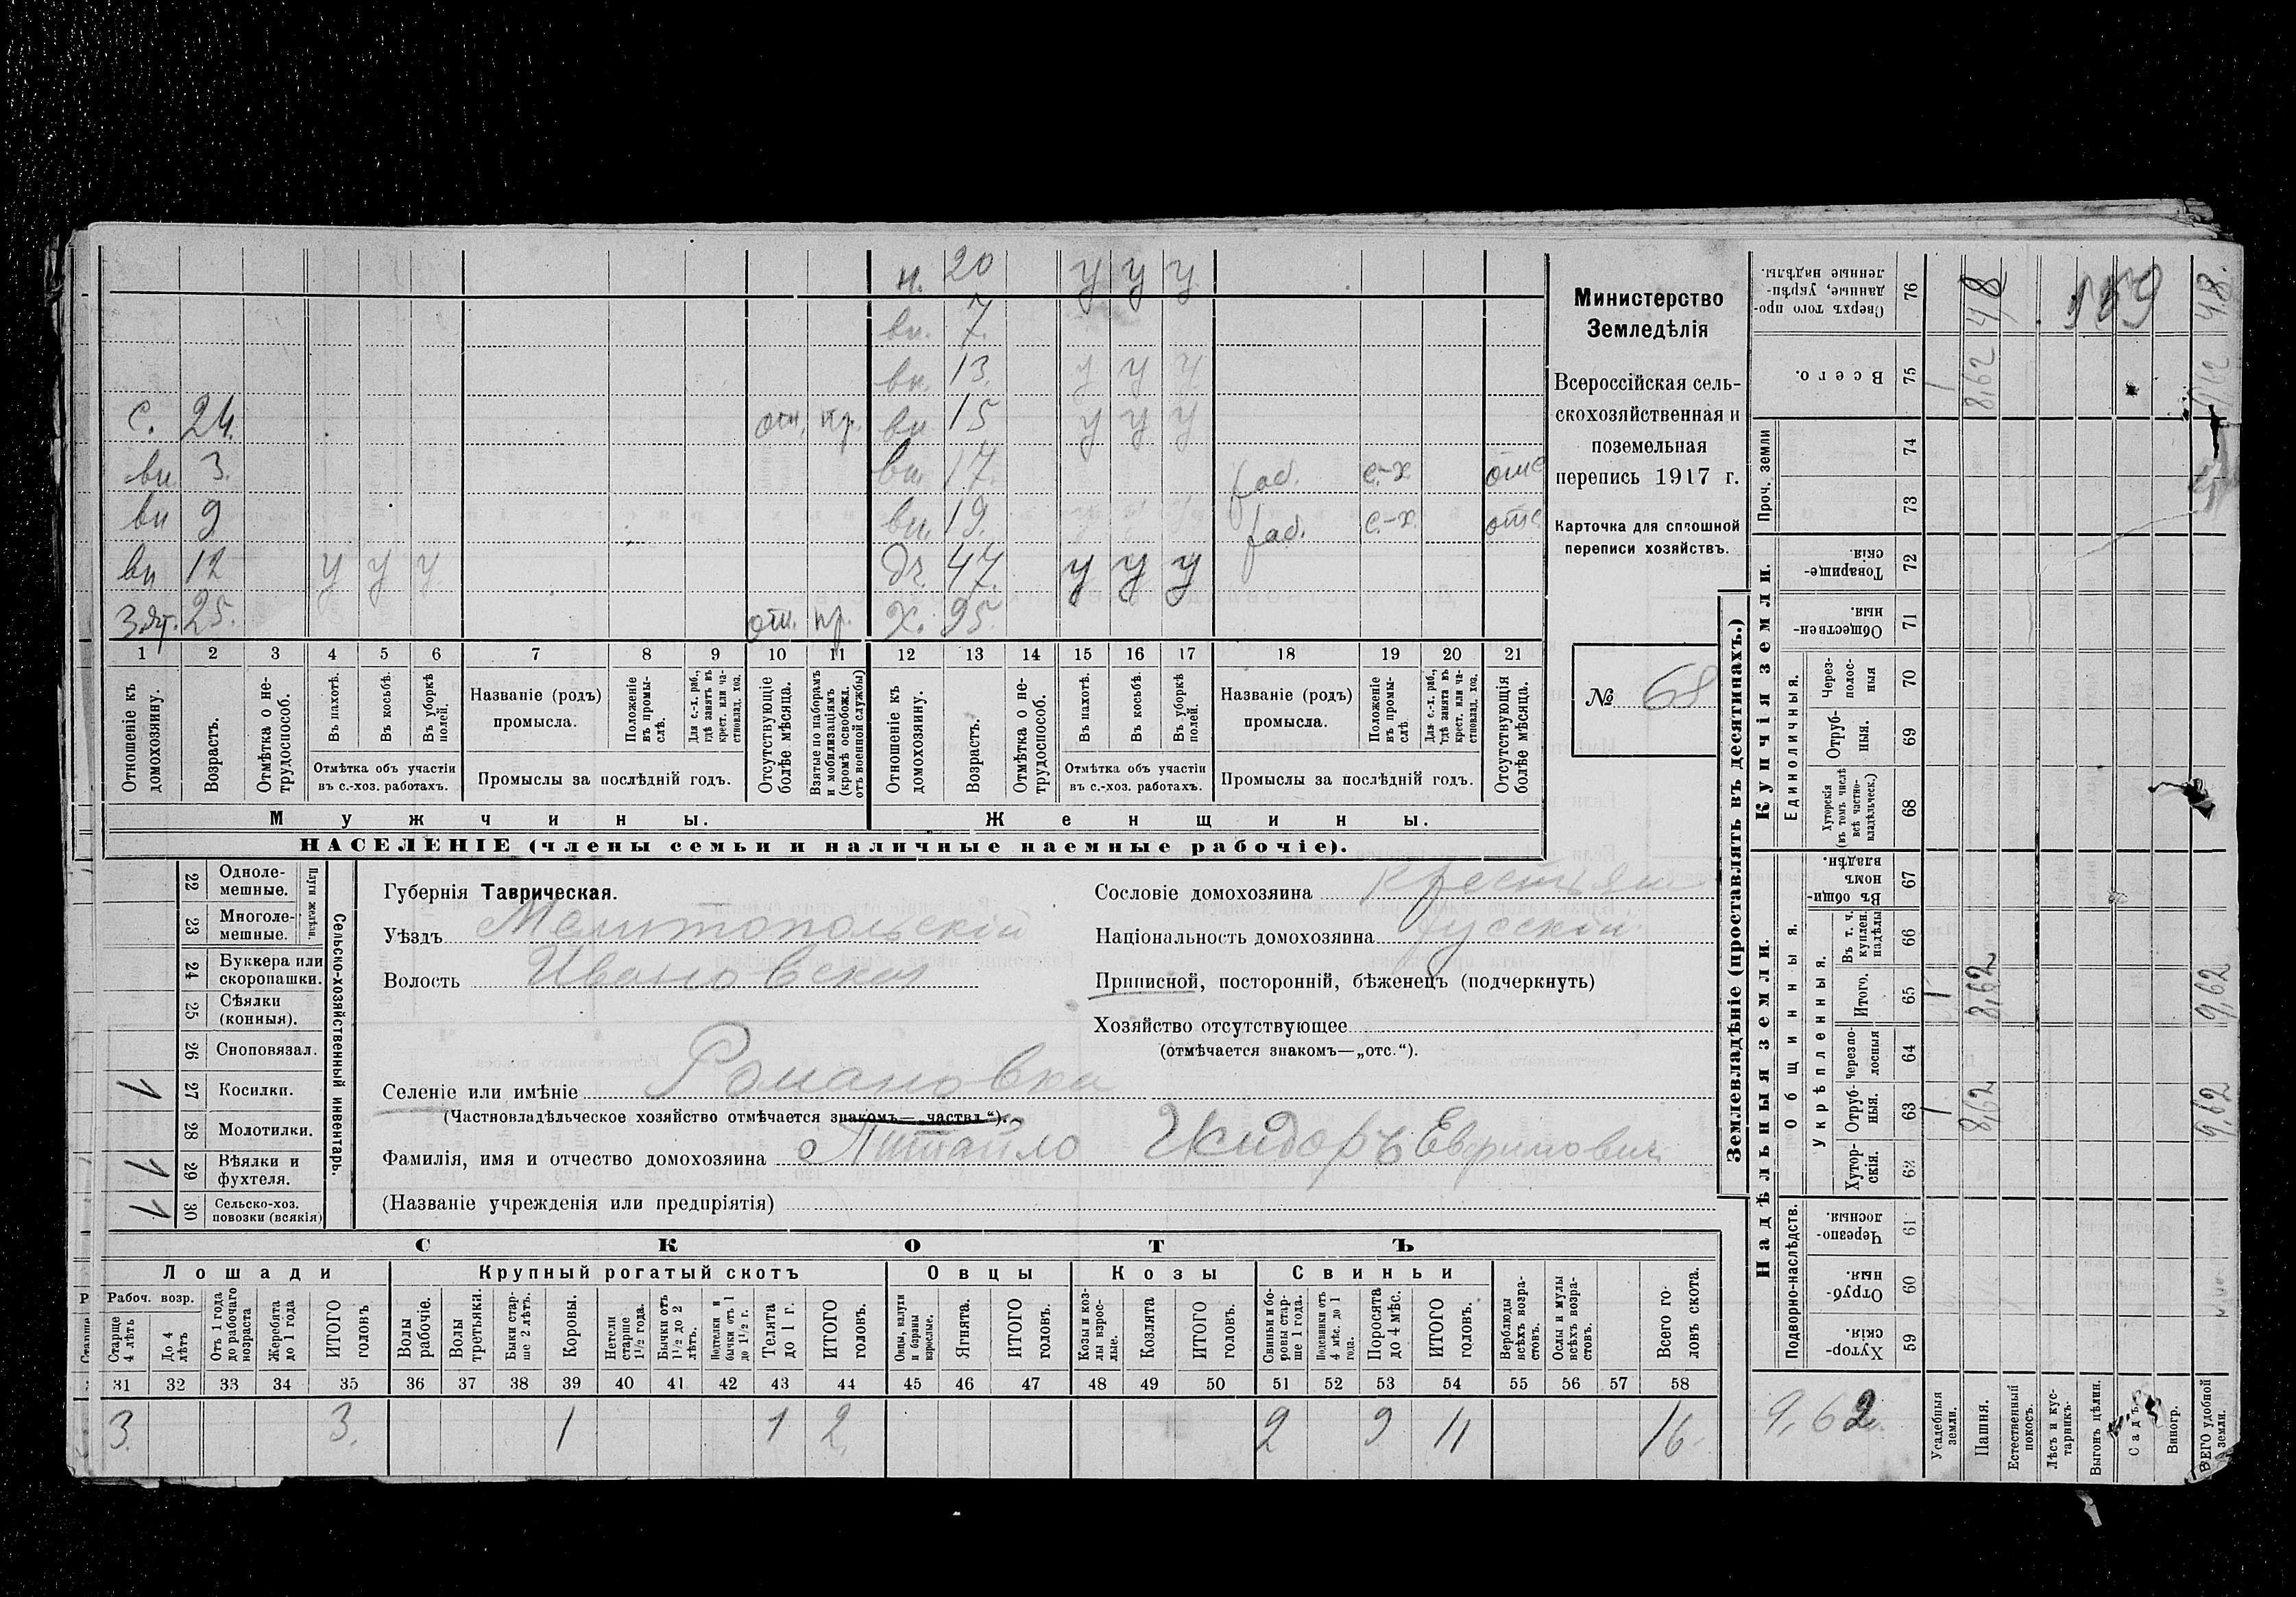 н. 20 у у у
вн. 7.
вн. 13. у у у
с. 24. отс. пр. вн. 15 у у у
вн. 3. вн. 17. раб. с.-х. отс
вн 9 вн. 19. раб. с.-х. отс
вн 12 у у у дч. 47. у у у
зят. 25. отс. пр. х. 95.
1 2 3 4 5 6 7 8 9 10 11 12 13 14 15 16 17 18 19 20 21
Отношеніе къ домохозяину.
Возрастъ.
Отмѣтка о нетрудоспособ.
Въ пахотѣ.
Въ косьбѣ.
Въ уборкѣ полей.
Отмѣтка объ участіи въ с.-хоз. работахъ.
Названіе (родъ) промысла.
Положеніе въ промыслѣ.
Для с.-х. раб., гдѣ занятъ въ крест. или частновлад. хоз.
Промыслы за послѣдній годъ.
Отсутствующіе болѣе мѣсяца.
Взятые по наборамъ и мобилизаціямъ (кромѣ освобожд. отъ военной службы)
Отношеніе къ домохозяину.
Возрастъ.
Отмѣтка о нетрудоспособ.
Въ пахотѣ.
Въ косьбѣ.
Въ уборкѣ полей.
Отмѣтка объ участіи въ с.-хоз. работахъ.
Названіе (родъ) промысла.
Положеніе въ промыслѣ.
Для с.-х. раб., гдѣ занята въ крест. или частновлад. хоз.
Промыслы за послѣдній годъ.
Отсутствующія болѣе мѣсяца.
Мужчины.
Женщины.
НАСЕЛЕНІЕ (члены семьи и наличные наемные рабочіе).
Министерство
Земледѣлія
Всероссійская сель-
скохозяйственная и
поземельная
перепись 1917 г.
Карточка для сплошной
переписи хозяйствъ.
№ 68
22 Однолемешные.
23 Многолемешные.
Плуги желѣзн.
24 Буккера или скоропашки.
25 Сѣялки (конныя).
26 Сноповязал.
27 Косилки. 1
28 Молотилки.
29 Вѣялки и фухтеля. 1
30 Сельско-хоз. повозки (всякія) 1
Сельско-хозяйственный инвентарь.
Губернія Таврическая.
Уѣздъ Мелитопольскій
Волость Ивановская
Сословіе домохозяина Крестьян
Національность домохозяина Русскій
Приписной, посторонній, бѣженецъ (подчеркнуть)
Хозяйство отсутствующее
(отмѣчается знакомъ—„отс.“).
Селеніе или имѣніе Романовка
(Частновладѣльческое хозяйство отмѣчается знакомъ—„частвл.“).
Фамилія, имя и отчество домохозяина Питайло Исидоръ Евфимович
(Названіе учрежденія или предпріятія)
СКОТЪ
Лошади
Крупный рогатый скотъ
Овцы
Козы
Свиньи
Рабоч. возр.
Старше 4 лѣтъ
До 4 лѣтъ
Отъ 1 года до рабочаго возраста
Жеребята до 1 года
ИТОГО головъ
Волы рабочіе.
Волы третьяки.
Быки старше 2 лѣтъ.
Коровы.
Нетели старше 1½ года.
Бычки отъ 1½ до 2 лѣтъ.
Нетелки и бычки отъ 1 до 1½ г.
Телята до 1 г.
ИТОГО головъ.
Овцы, валухи и бараны взрослые.
Ягнята.
ИТОГО головъ.
Козы и козлы взрослые.
Козлята
ИТОГО головъ.
Свиньи и боровы старше 1 года.
Подсвинки отъ 4 мѣс. до 1 года.
Поросята до 4 мѣс.
ИТОГО головъ.
Верблюды всѣхъ возрастовъ.
Ослы и мулы всѣхъ возрастовъ.
Всего головъ скота.
31 32 33 34 35 36 37 38 39 40 41 42 43 44 45 46 47 48 49 50 51 52 53 54 55 56 57 58
3. 3. 1 1 2 2 9 11 16
Землевладѣніе (проставлять въ десятинахъ.)
Купчія земли.
Надѣльныя земли.
Сверхъ того проданные, укрѣпленные надѣлы. 76 48 159 48.
Всего. 75 1 8,62
Проч. земли
74
73
Товарищескія. 72
Общественныя. 71
Единоличныя.
Черезполосныя 70
Отрубныя. 69
Хуторскія (въ томъ числѣ всѣ частновладѣльческ.) 68
Общинныя.
Въ общинномъ владѣн. 67
Въ т. ч. куплен. надѣлы 66
Укрѣпленныя.
Итого. 65 1 8,62 9,62
Черезполосныя 64
Отрубныя. 63 1 8,62 9,62
Хуторскія. 62
Подворно-наслѣдств.
Черезполосныя. 61
Отрубныя. 60
Хуторскія. 59
9,62
Усадебныя земли.
Пашня.
Естественный покосъ.
Лѣсъ и кустарникъ.
Выгонъ цѣлин.
Садъ
Виногр.
ВСЕГО удобной земли.